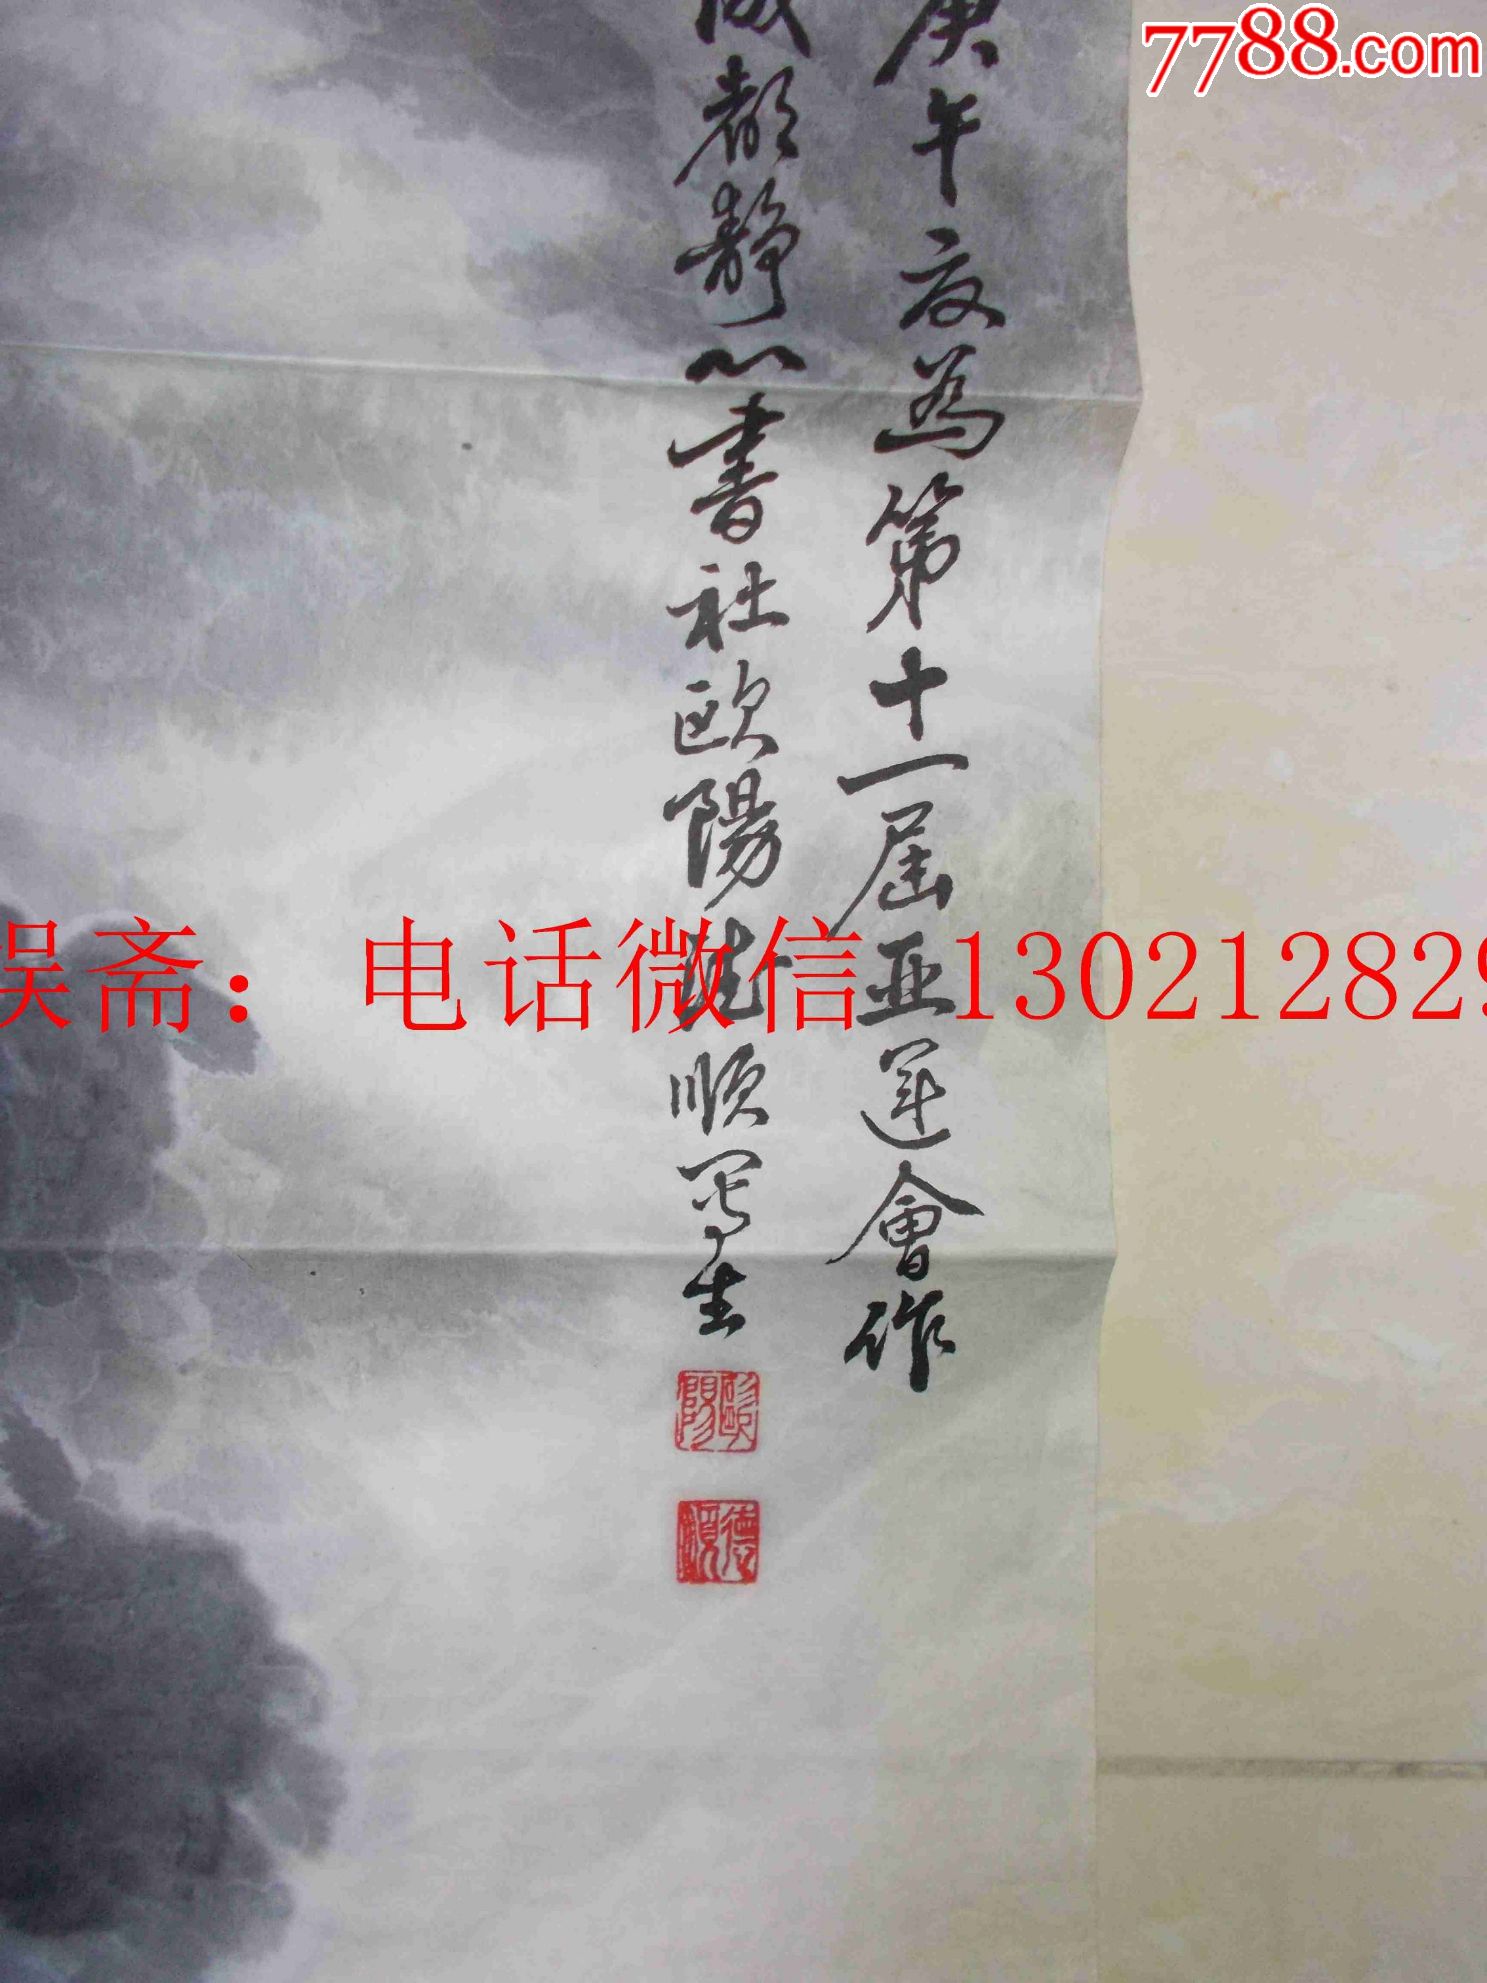 7788.com
庚午夏為第十一屆亚運會作
成都靜心書社歐陽德順写生
误斋：电话微信 130212829
歐陽
德順